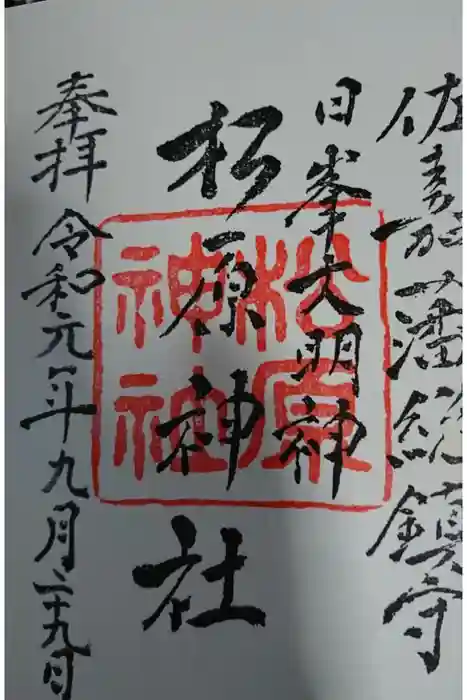 佐嘉藩総鎮守
日峯大明神
松原神社
奉拝 令和元年九月二十九日
松原神社